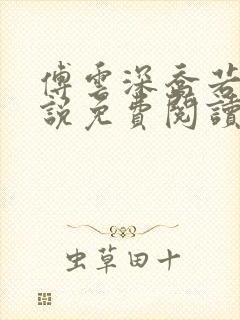 傅雲深喬若
說免費閱讀
虫草田十